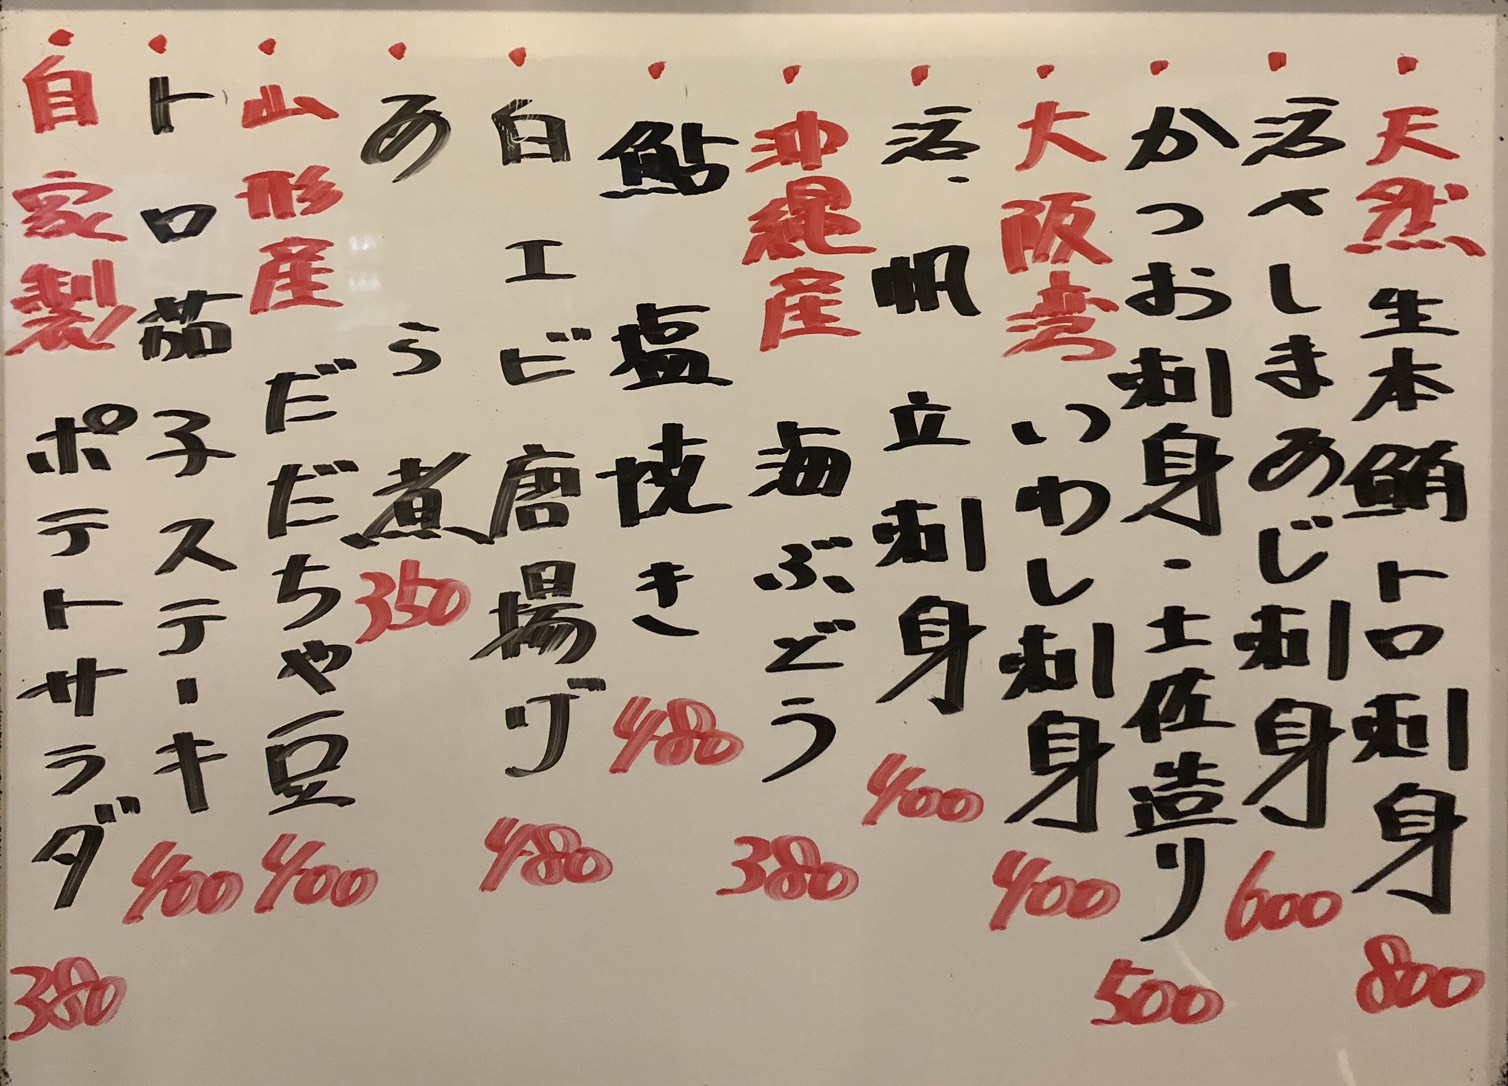 ・天然生本鮪トロ刺身 800
・活〆しまあじ刺身 600
・かつお刺身・土佐造り 500
・大阪湾いわし刺身 400
・活帆立刺身 400
・沖縄産海ぶどう 380
・鮎塩焼き 480
・白エビ唐揚げ 480
・あら煮 350
・山形産だだちゃ豆 400
・トロ茄子ステーキ 400
・自家製ポテトサラダ 380